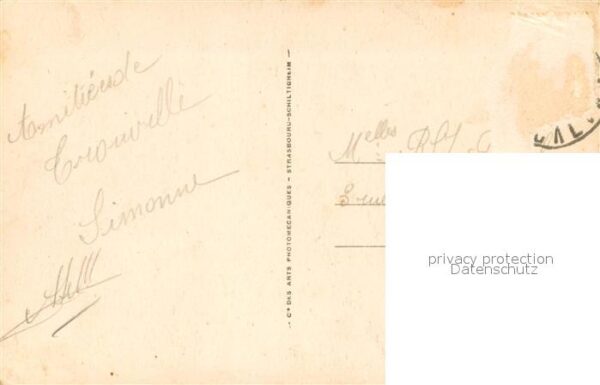 Amitiés de
Trouville
Simonne
— Cie DES ARTS PHOTOMECANIQUES - STRASBOURG-SCHILTIGHEIM —
Melles
privacy protection
Datenschutz